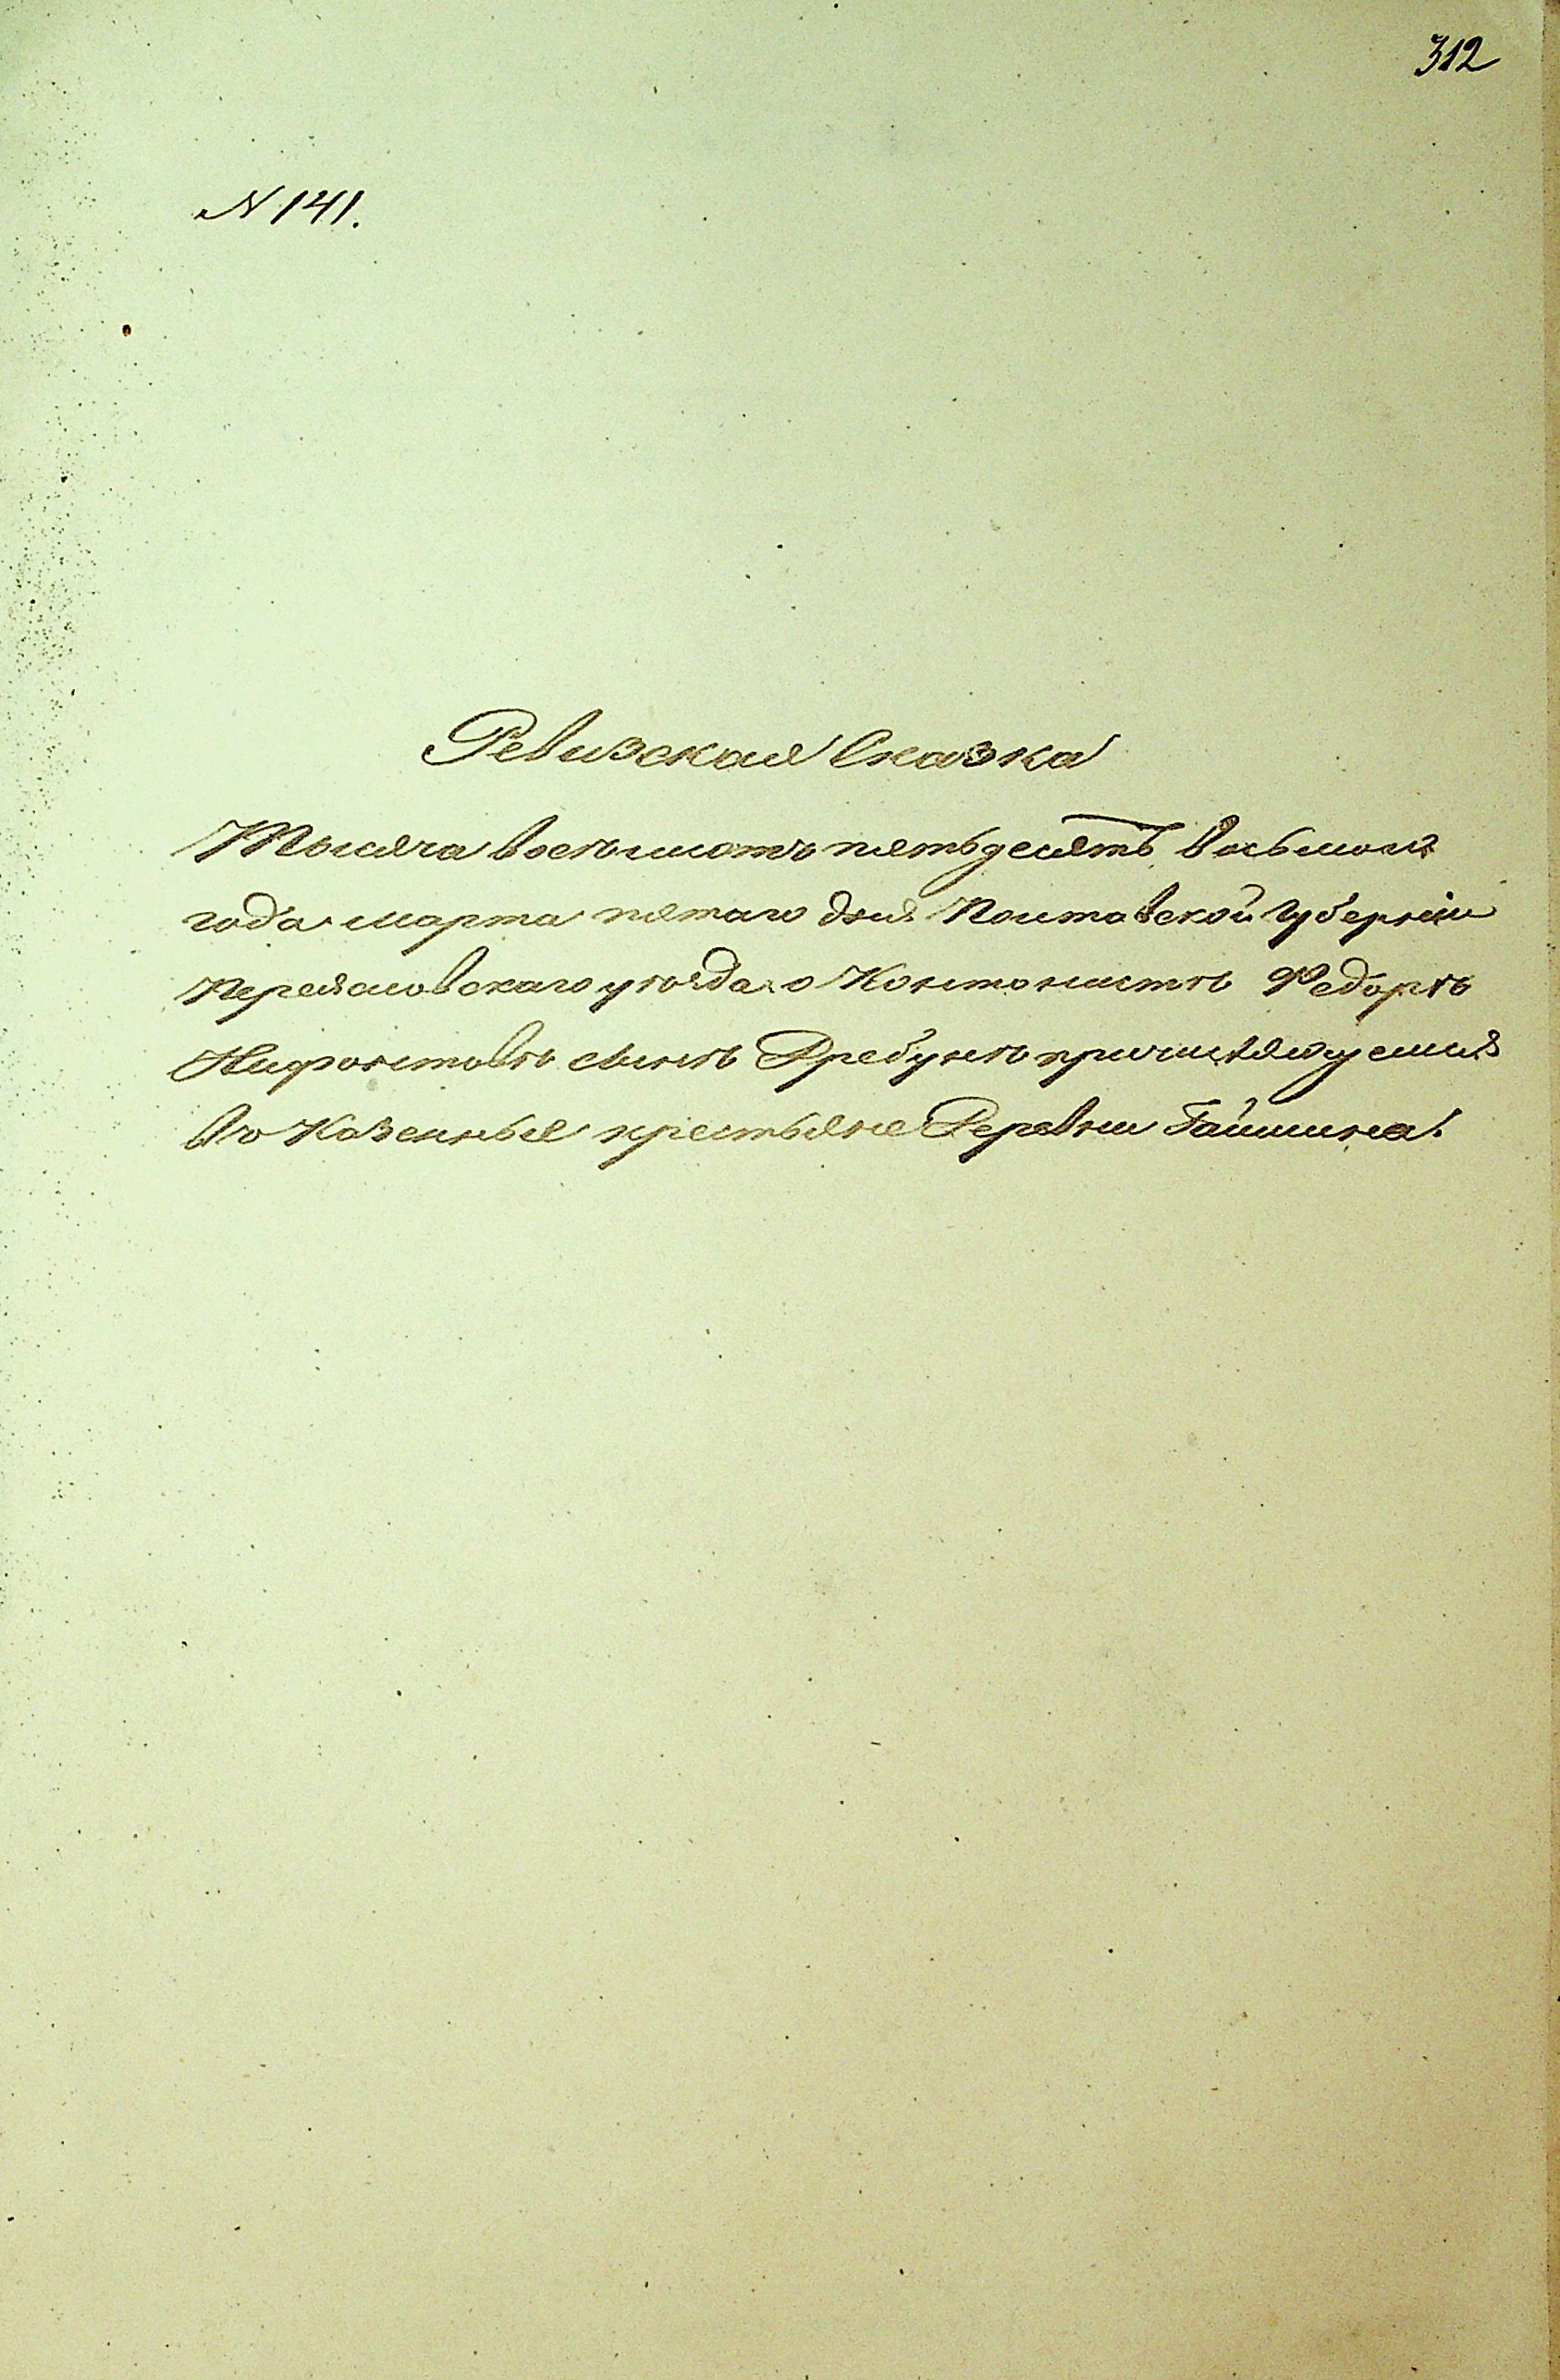 312
N 141.
Ревизская Сказка
Тысяча восемьсотъ пятьдесятъ восьмого
года марта пятаго дня Полтавской Губерніи
Переяславскаго уѣзда о Кантонистѣ Федорѣ
Нифонтовѣ сынѣ Дребунѣ причисляющемся
въ Казенные крестьяне Деревни Гайшина.